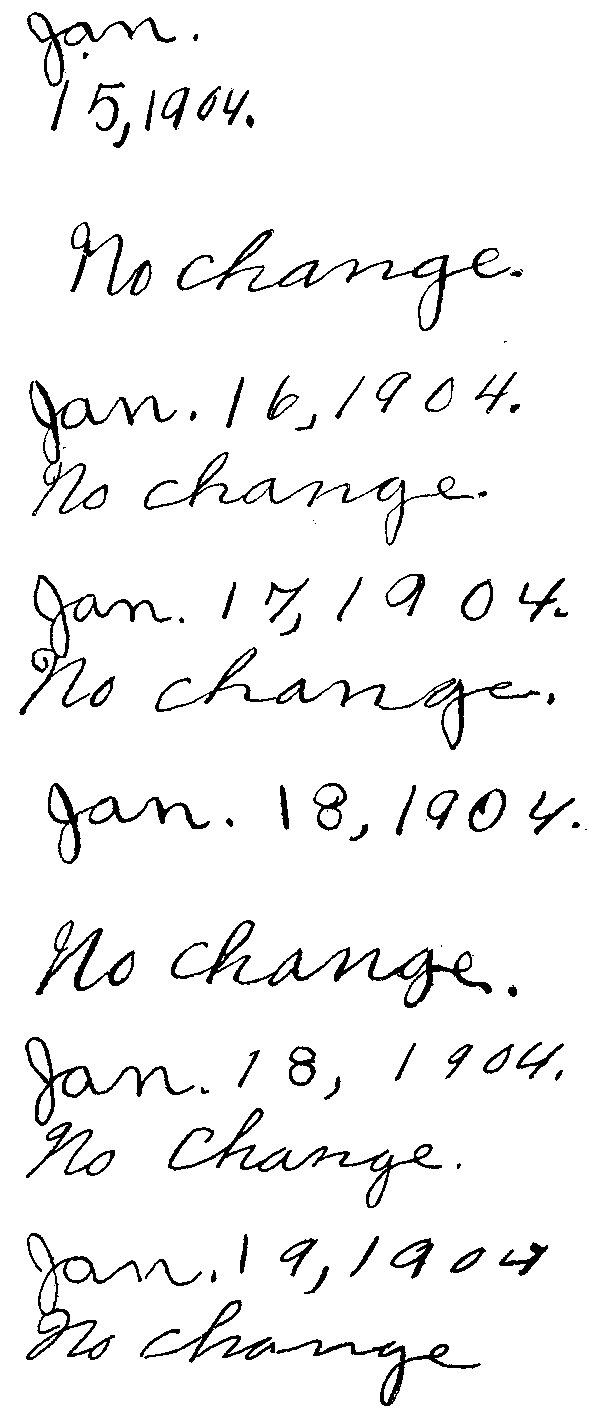 Jan.
15, 1904.
No change.
Jan. 16, 1904.
No change.
Jan. 17, 1904.
No change.
Jan. 18, 1904.
No change.
Jan. 18, 1904.
No change.
Jan. 19, 1904
No change